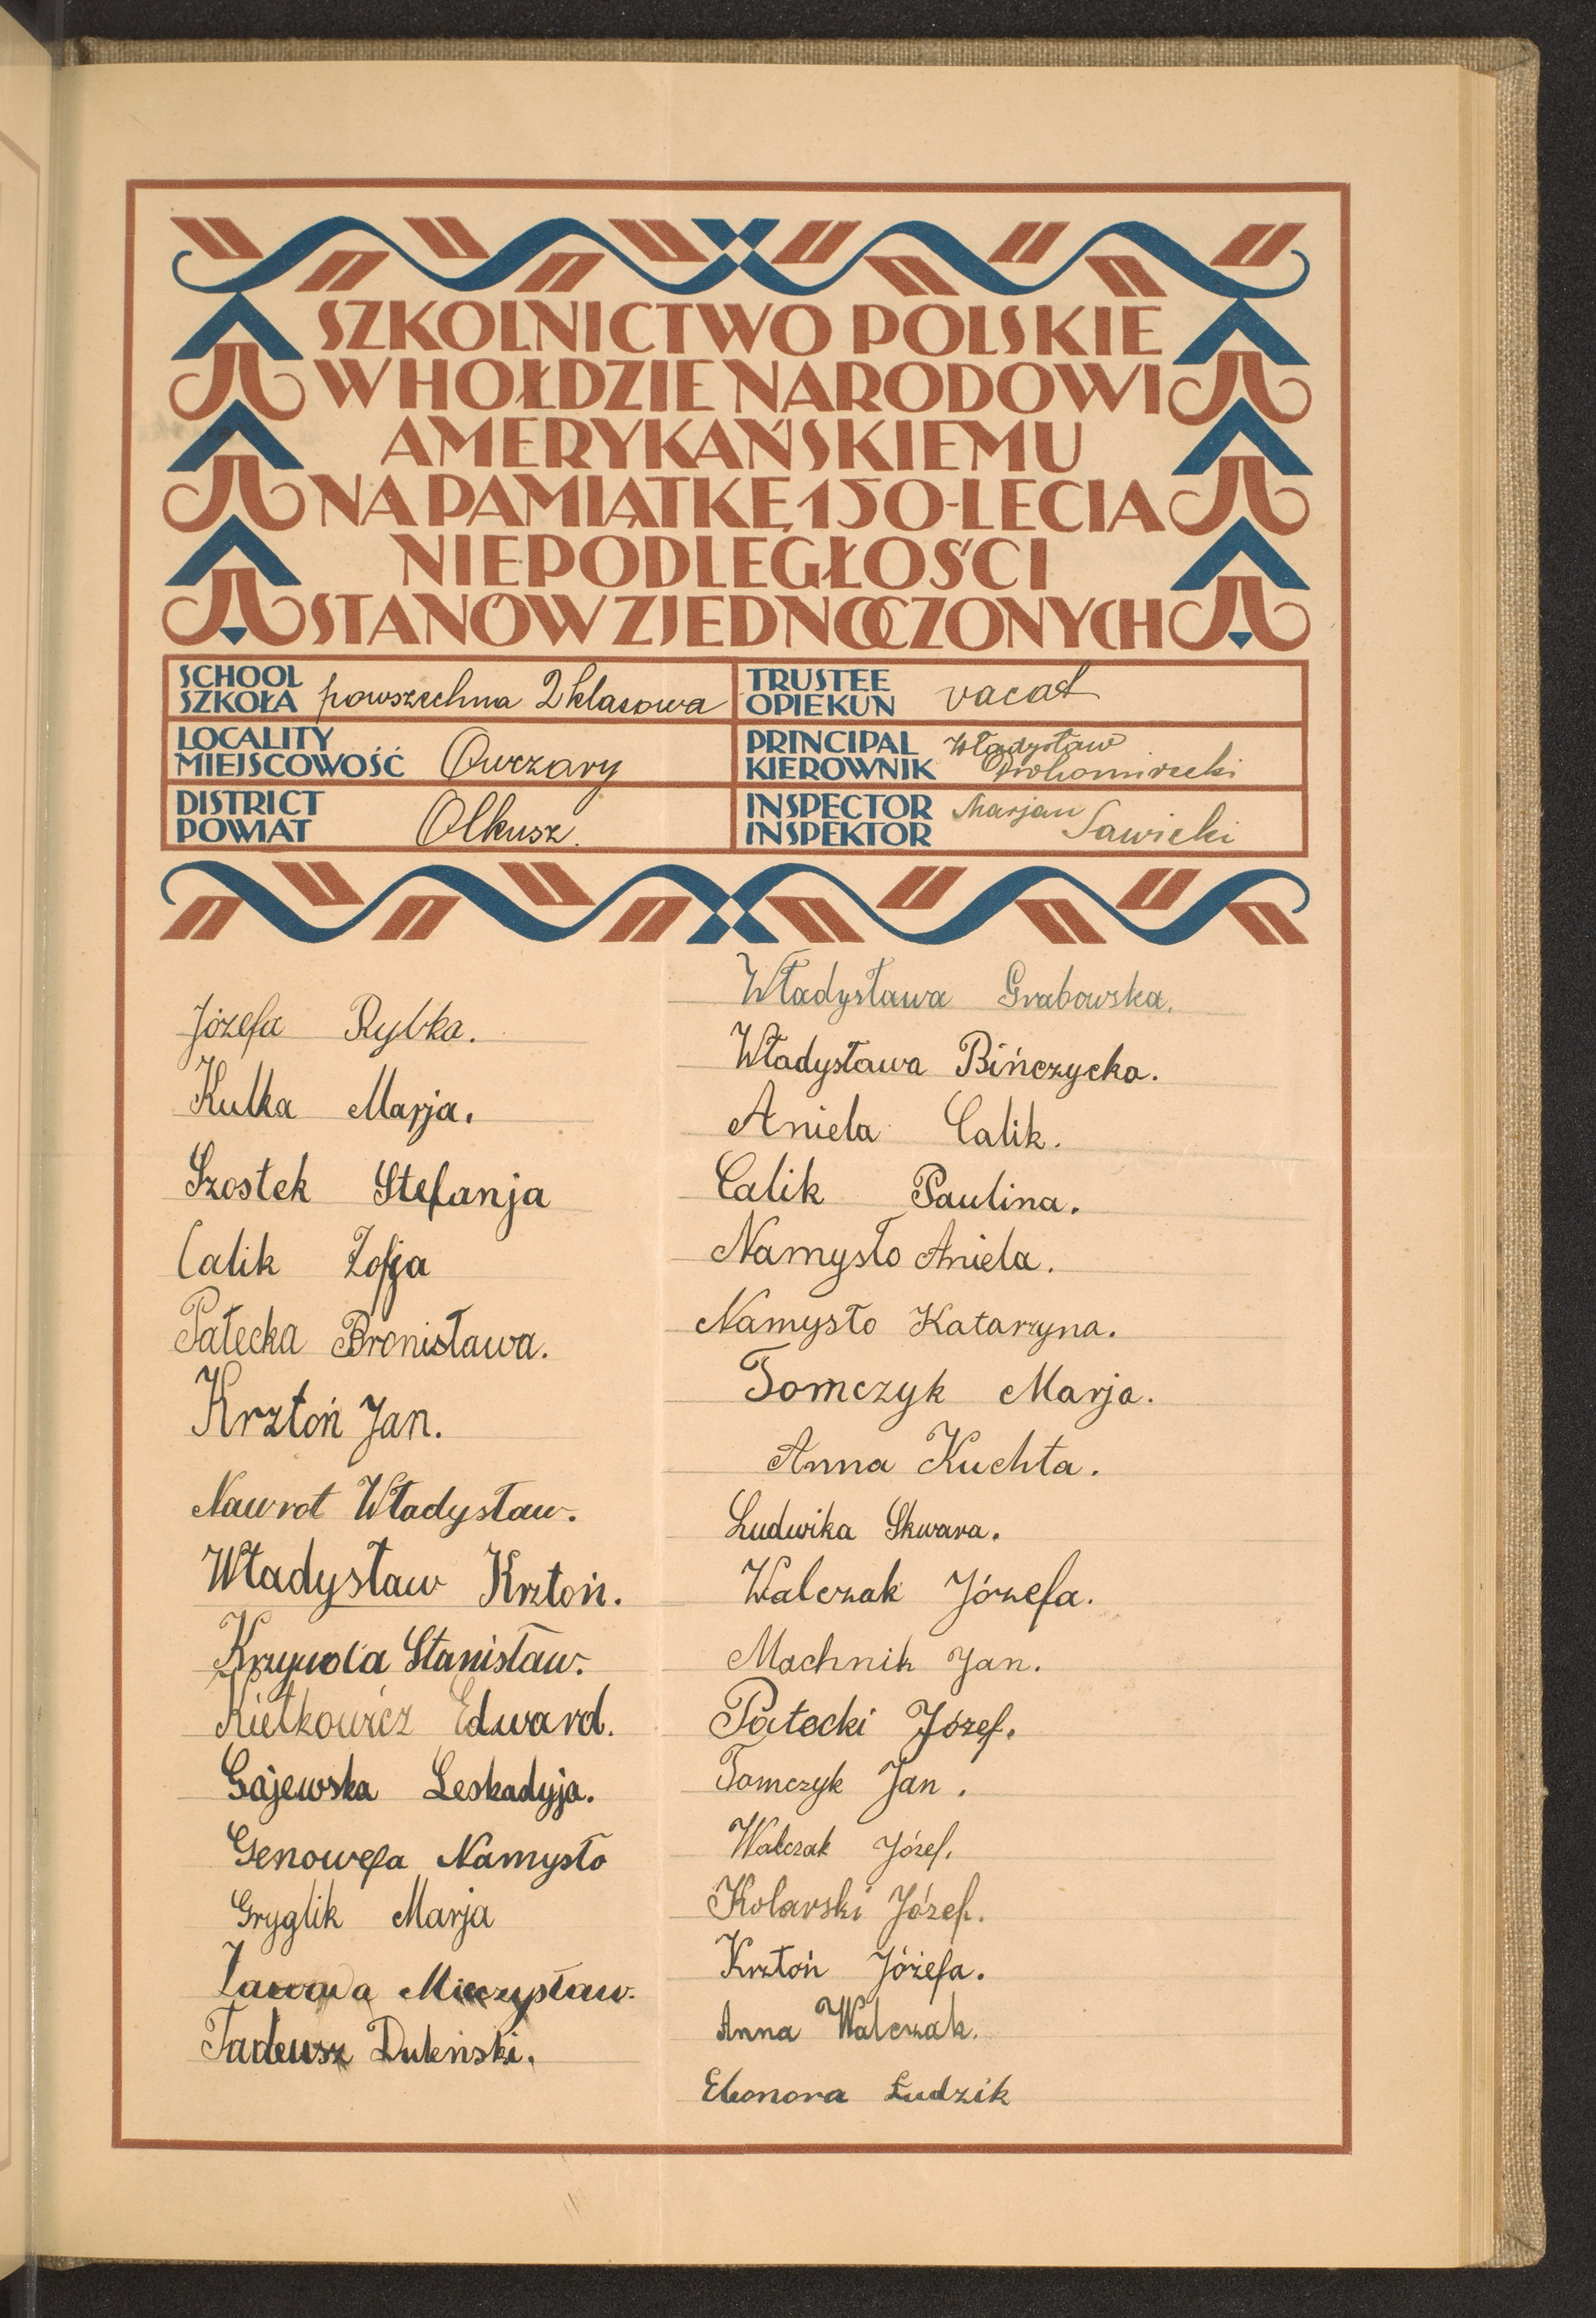 SZKOLNICTWO POLSKIE
W HOŁDZIE NARODOWI
AMERYKAŃSKIEMU
NA PAMIĄTKĘ 150-LECIA
NIEPODLEGŁOŚCI
STANÓW ZJEDNOCZONYCH
SCHOOL
SZKOŁA powszechna 2 klasowa
TRUSTEE
OPIEKUN vacat
LOCALITY
MIEJSCOWOŚĆ Owczary
PRINCIPAL Władysław
KIEROWNIK
DISTRICT
POWIAT Olkusz.
INSPECTOR Marjan
INSPEKTOR Sawicki
Józefa Rybka.
Kulka Marja.
Szostek Stefanja
Calik Zofja
Pałecka Bronisława.
Krztoń Jan.
Nawrot Władysław.
Władysław Krztoń.
Stanisław.
Kiełkowicz Edward.
Gajewska Leskadyja.
Genowefa Namysło
Gryglik Marja
Zawada Mieczysław.
Tadeusz Duleński.
Władysława Grabowska.
Władysława Bińczycka.
Aniela Calik.
Calik Paulina.
Namysło Aniela.
Namysło Katarzyna.
Tomczyk Marja.
Anna Kuchta.
Ludwika Skwara.
Walczak Józefa.
Machnik Jan.
Pałecki Józef.
Tomczyk Jan.
Walczak Józef.
Kolarski Józef.
Krztoń Józefa.
Anna Walczak.
Eleonora Ludzik